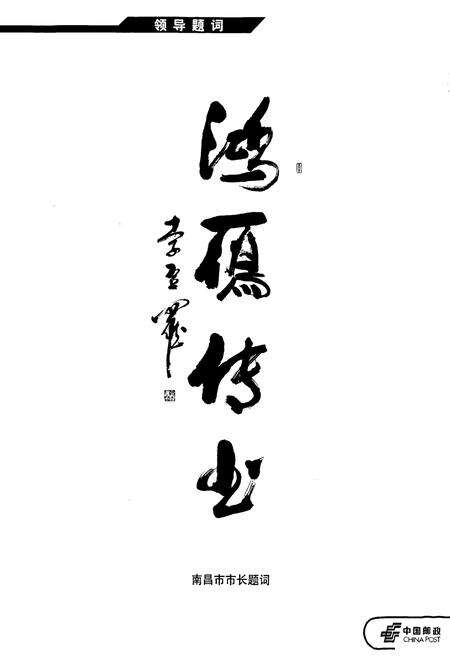 领导题词
鸿雁传书
李豆罗
南昌市市长题词
中国邮政
CHINA POST